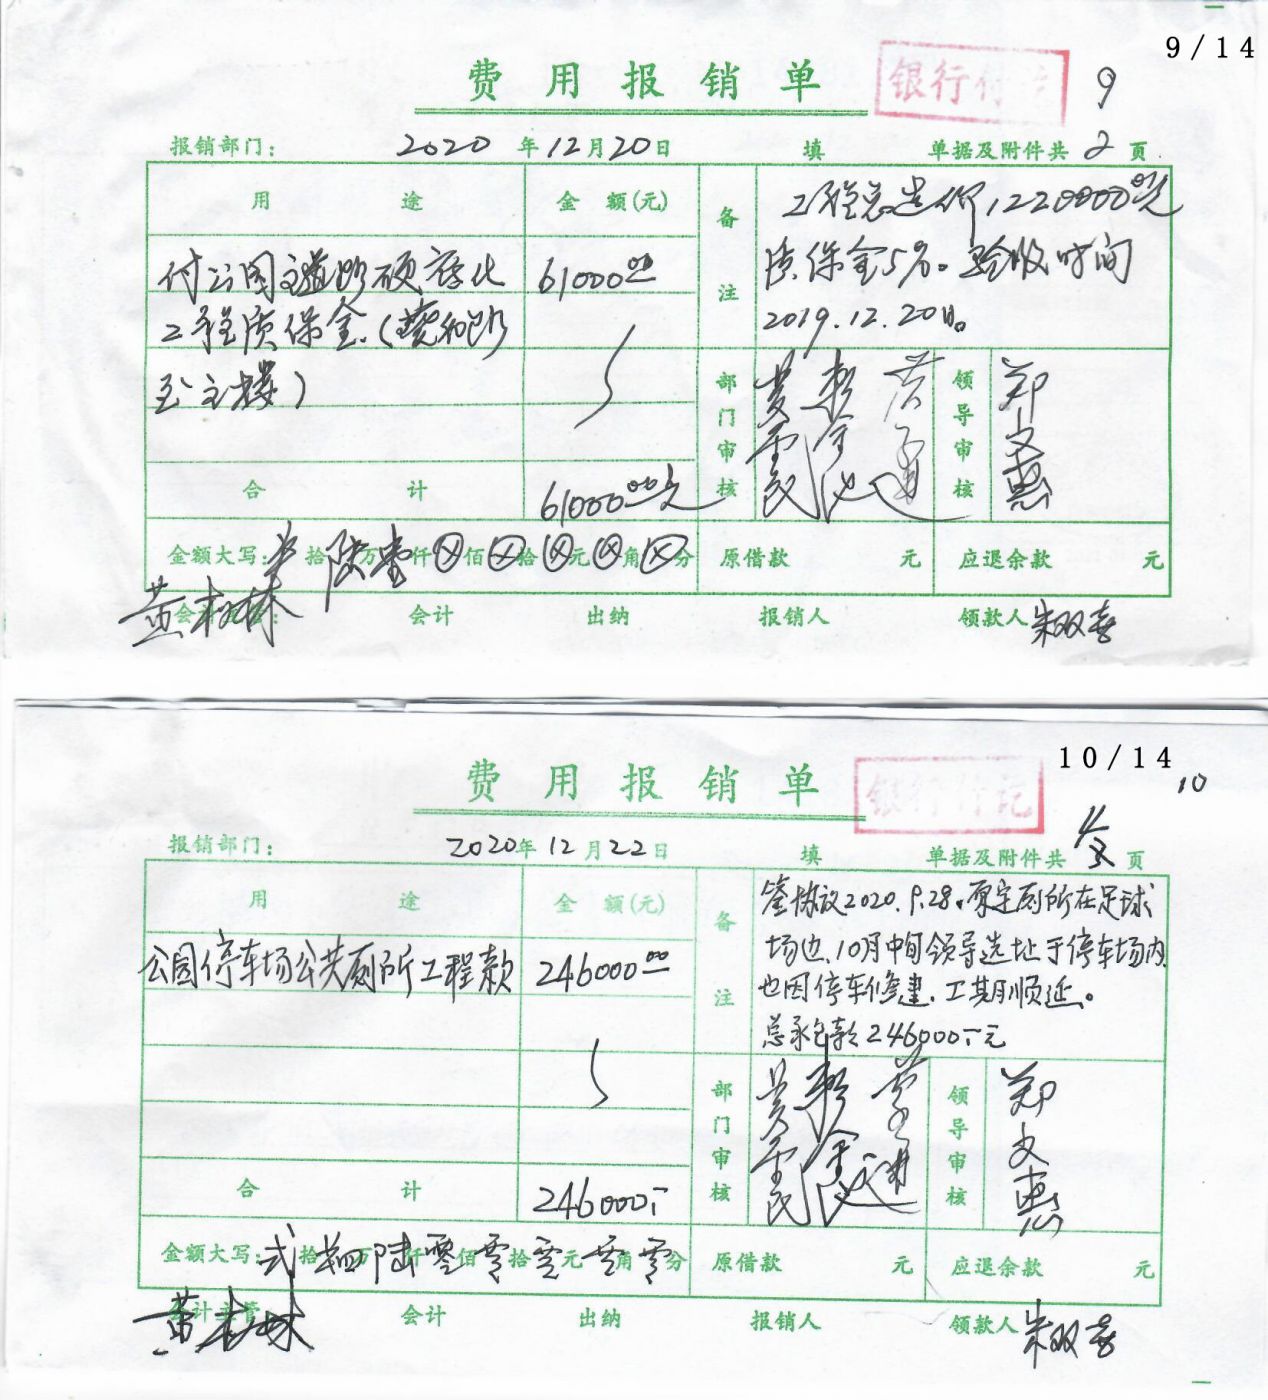 9/14
费用报销单
银行付讫
9
报销部门： 2020年12月20日 填 单据及附件共 2 页
用途 金额(元) 备注
工程总造价1220000.00元
质保金5%。验收时间
2019.12.20日。
付公园主道路硬底化 61000.00
工程质保金.(
至主楼)
部门审核 领导审核 郑文惠
合计 61000.00元
金额大写： 拾陆万壹仟⊗佰⊗拾⊗元⊗角⊗分 原借款 元 应退余款 元
会计主管： 会计 出纳 报销人 领款人 朱双喜
黄树林
10/14
费用报销单
银行付讫
10
报销部门： 2020年12月22日 填 单据及附件共 页
用途 金额(元) 备注
签协议2020.9.28.原定厕所在足球
场边.10月中旬领导选址于停车场内
也因停车修建.工期顺延。
总承包款246000.-元
公园停车场公共厕所工程款 246000.00
部门审核 领导审核 郑文惠
合计 246000.-
金额大写：弍拾肆万陆仟零佰零拾零元零角零分 原借款 元 应退余款 元
会计主管 会计 出纳 报销人 领款人 朱双喜
黄树林